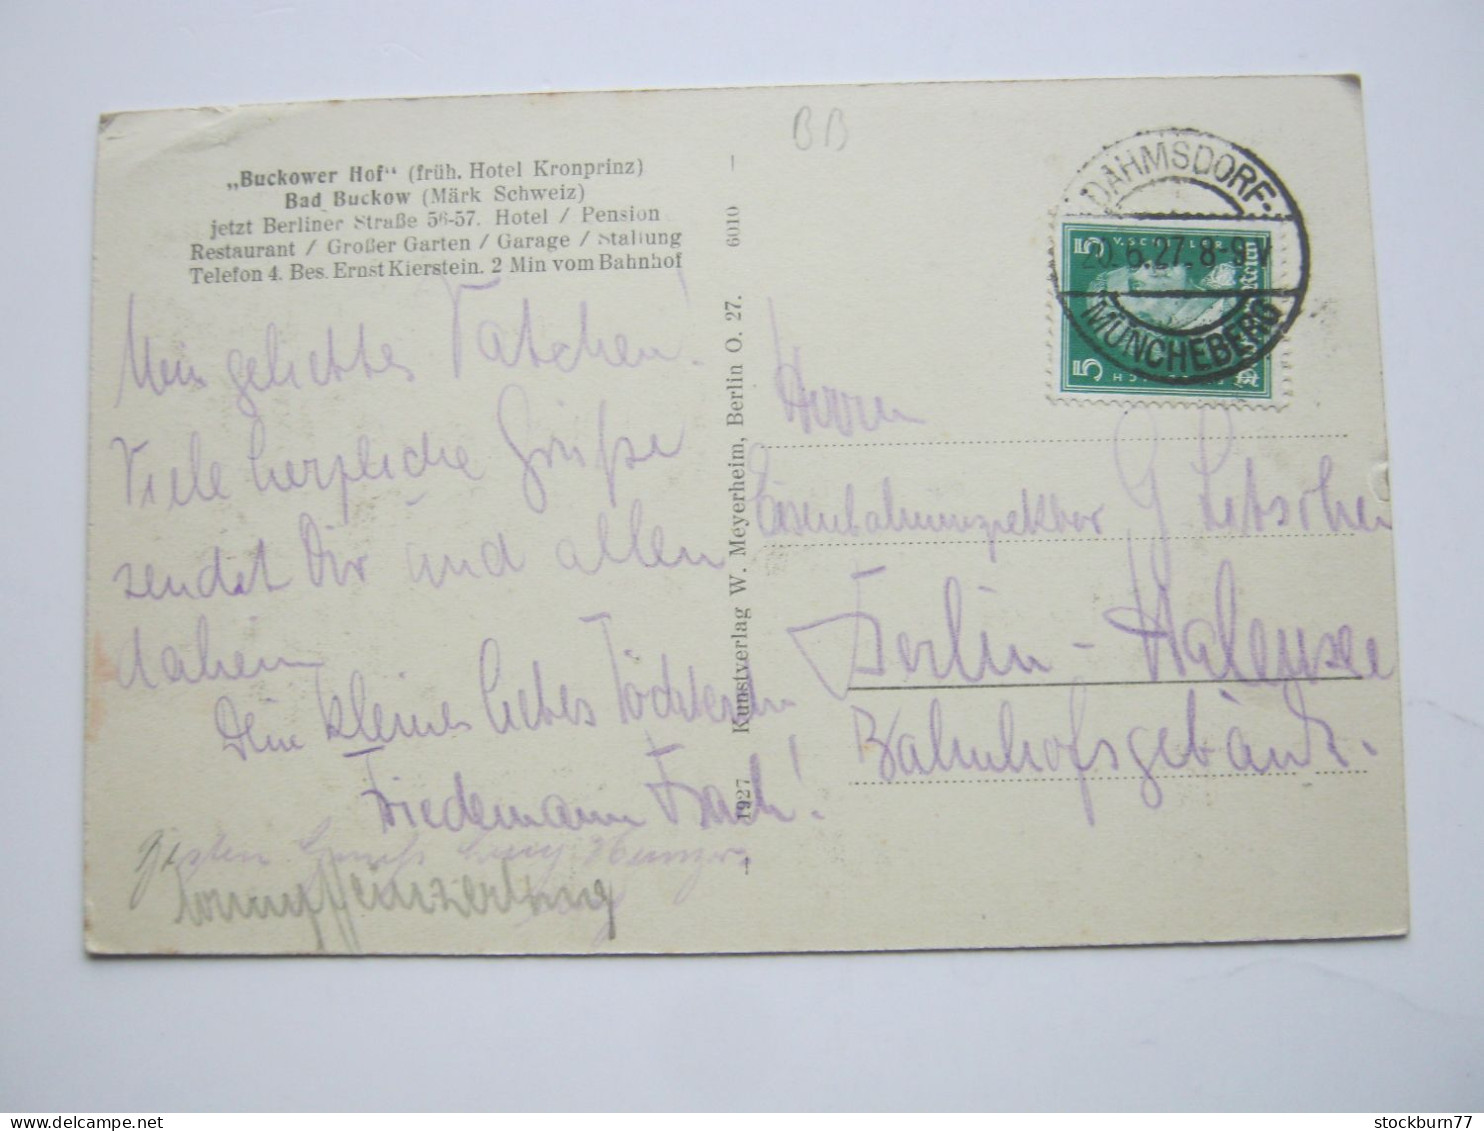 BB
„Buckower Hof“ (früh. Hotel Kronprinz)
Bad Buckow (Märk Schweiz)
jetzt Berliner Straße 56-57. Hotel / Pension
Restaurant / Großer Garten / Garage / Stallung
Telefon 4. Bes. Ernst Kierstein. 2 Min vom Bahnhof
Mein geliebtes Vatchen!
Viele herzliche Grüße
sendet Dir und allen
daheim
Dein kleines liebes Töchterchen
Friedemann Bach!
Besten Gruß
1927 Kunstverlag W. Meyerheim, Berlin O. 27. 6010
DAHMSDORF-
20.6.27.8-9V
MÜNCHEBERG
5
5
Herrn
Eisenbahninspektor G
Berlin-Halensee
Bahnhofsgebäude.
stockburn77
delcampe.net